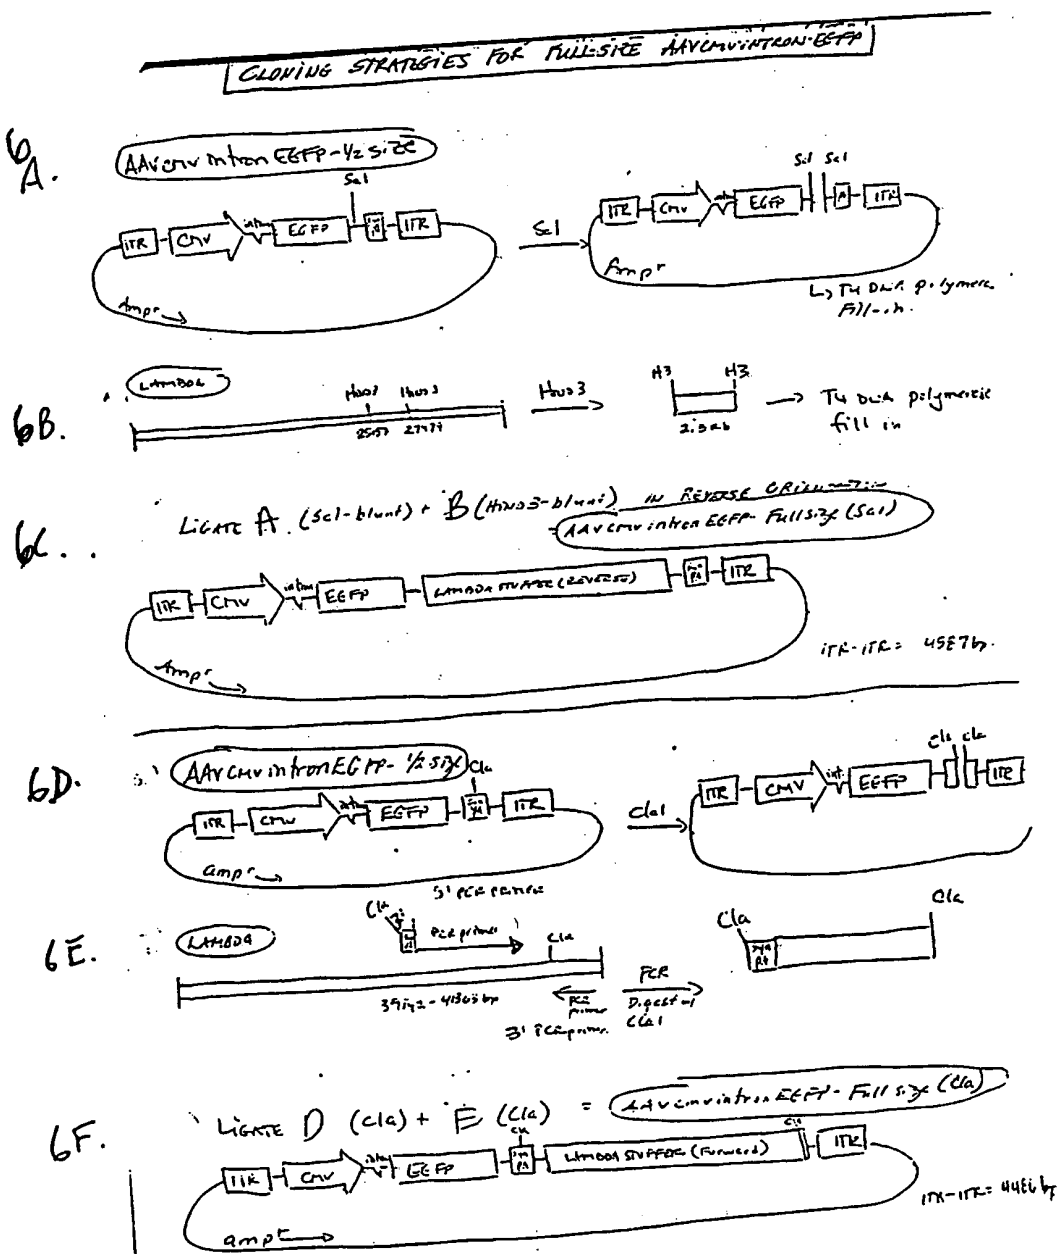 CLONING STRATEGIES FOR FULL-SIZE AAVCMVINTRON-EGFP
6A.
AAVCMV intron EGFP-1/2 SIZE
Sal
ITR CMV EGFP ITR
Ampr
Sal
Sal Sal
ITR CMV EGFP ITR
Ampr
T4 DNA polymerase
Fill-in.
6B.
LAMBDA
Hind3 Hind3
Hind3
H3 H3
2.3 kb
T4 DNA polymerase
fill in
6C.
LIGATE A (Sal-blunt) + B (HIND3-blunt) IN REVERSE ORIENTATION
= AAVCMVintron EGFP- Fullsize (Sal)
ITR CMV intron EGFP LAMBDA STUFFER (REVERSE) ITR
Ampr
ITR-ITR =
6D.
AAVCMVintronEGFP- 1/2 size
Cla
ITR CMV EGFP ITR
ampr
Cla1
Cla Cla
ITR CMV int EGFP ITR
5' PCR PRIMER
6E.
LAMBDA
Cla
PCR primer
Cla
PCR
primer
3' PCR primer
PCR
Digest
Cla1
Cla Cla
6F.
LIGATE D (Cla) + E (Cla) = AAVCMVintronEGFP- Full size (Cla)
Cla Cla
ITR CMV EGFP LAMBDA STUFFER (Forward) ITR
ampr
ITR-ITR =